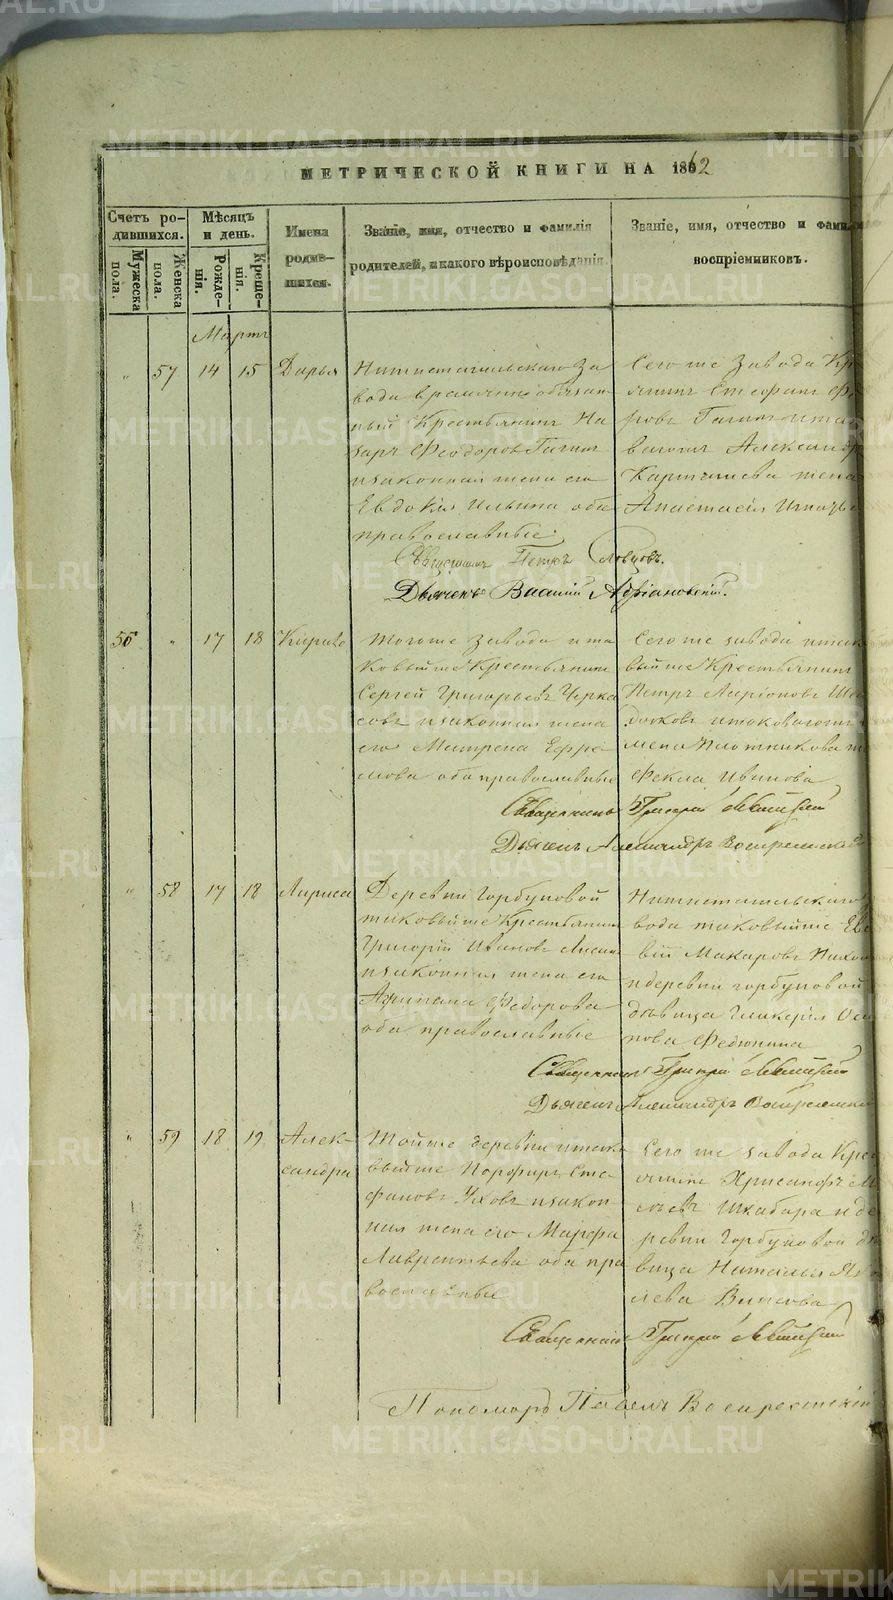 МЕТРИЧЕСКОЙ КНИГИ НА 1862
Счетъ родившихся.
Мужеска пола.
Женска пола.
Мѣсяцъ и день.
Рожденія.
Крещенія.
Имена родившихся.
Званіе, имя, отчество и фамилія
родителей, и какого вѣроисповѣданія.
Званіе, имя, отчество и фами
воспріемниковъ.
Мартъ
" 57 14 15 Дарья
Нижнетагильскаго за
вода временно обязан
ный Крестьянинъ На
заръ Феодоровъ
и законная жена его
Евдокія Ильина оба
православные
Сего же завода Кр
Стефанъ Фе
ровъ
Александр
жена
Анастасія Игнать
Священникъ Петръ Словцовъ.
Дьяконъ Василій Адріановскій.
56 " 17 18 Кирилъ
Того же завода и та
ковый же Крестьянинъ
Сергей Григорьевъ Черка
совъ и законная жена
его Матрена Ефре
мова оба православные
Сего же завода и так
вый же Крестьянинъ
Петръ Ларіоновъ
и таковагоже
мена Плотникова ж
Фекла Иванова
Священникъ Григорій
Дьяконъ Александръ Воскресенск
" 58 17 18 Лариса
Деревни Горбуновой
таковый же Крестьянинъ
Григорій Ивановъ
и законная жена его
Федорова
оба православные
Нижнетагильскаго
вода таковый же Ев
вій Макаровъ
и деревни горбуновой
дѣвица Гликерія Оси
пова Федюнина
Священникъ Григорій
Дьяконъ Александръ Воскресенск
" 59 18 19 Александра
Той же деревни и тако
вый же Порфиръ Сте
фановъ Уховъ и закон
ная жена его Марфа
Лаврентьева оба пра
вославные
Сего же завода Кре
Хрисанфъ М
Шкабара и де
ревни Горбуновой дѣ
вица Наталья Як
лева
Священникъ Григорій
Пономарь Павелъ Воскресенскій
METRIKI.GASO-URAL.RU